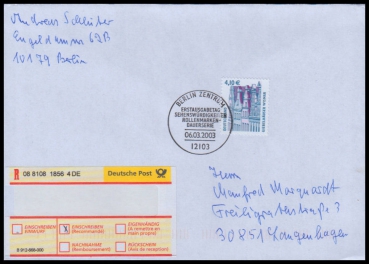 Andreas Schlüter
Engeldamm 62B
10179 Berlin
4,10 €
BERLIN ZENTRUM
ERSTAUSGABETAG
SEHENSWÜRDIGKEITEN
ROLLENMARKEN-
DAUERSERIE
06.03.2003
12103
R 08 8108 1856 4 DE
Deutsche Post
EINSCHREIBEN EINWURF
X EINSCHREIBEN (Recommandé)
EIGENHÄNDIG (À remettre en main propre)
NACHNAHME (Remboursement)
RÜCKSCHEIN (Avis de réception)
Herrn
Manfred Marquardt
Freiligrathstraße 3
30851 Langenhagen